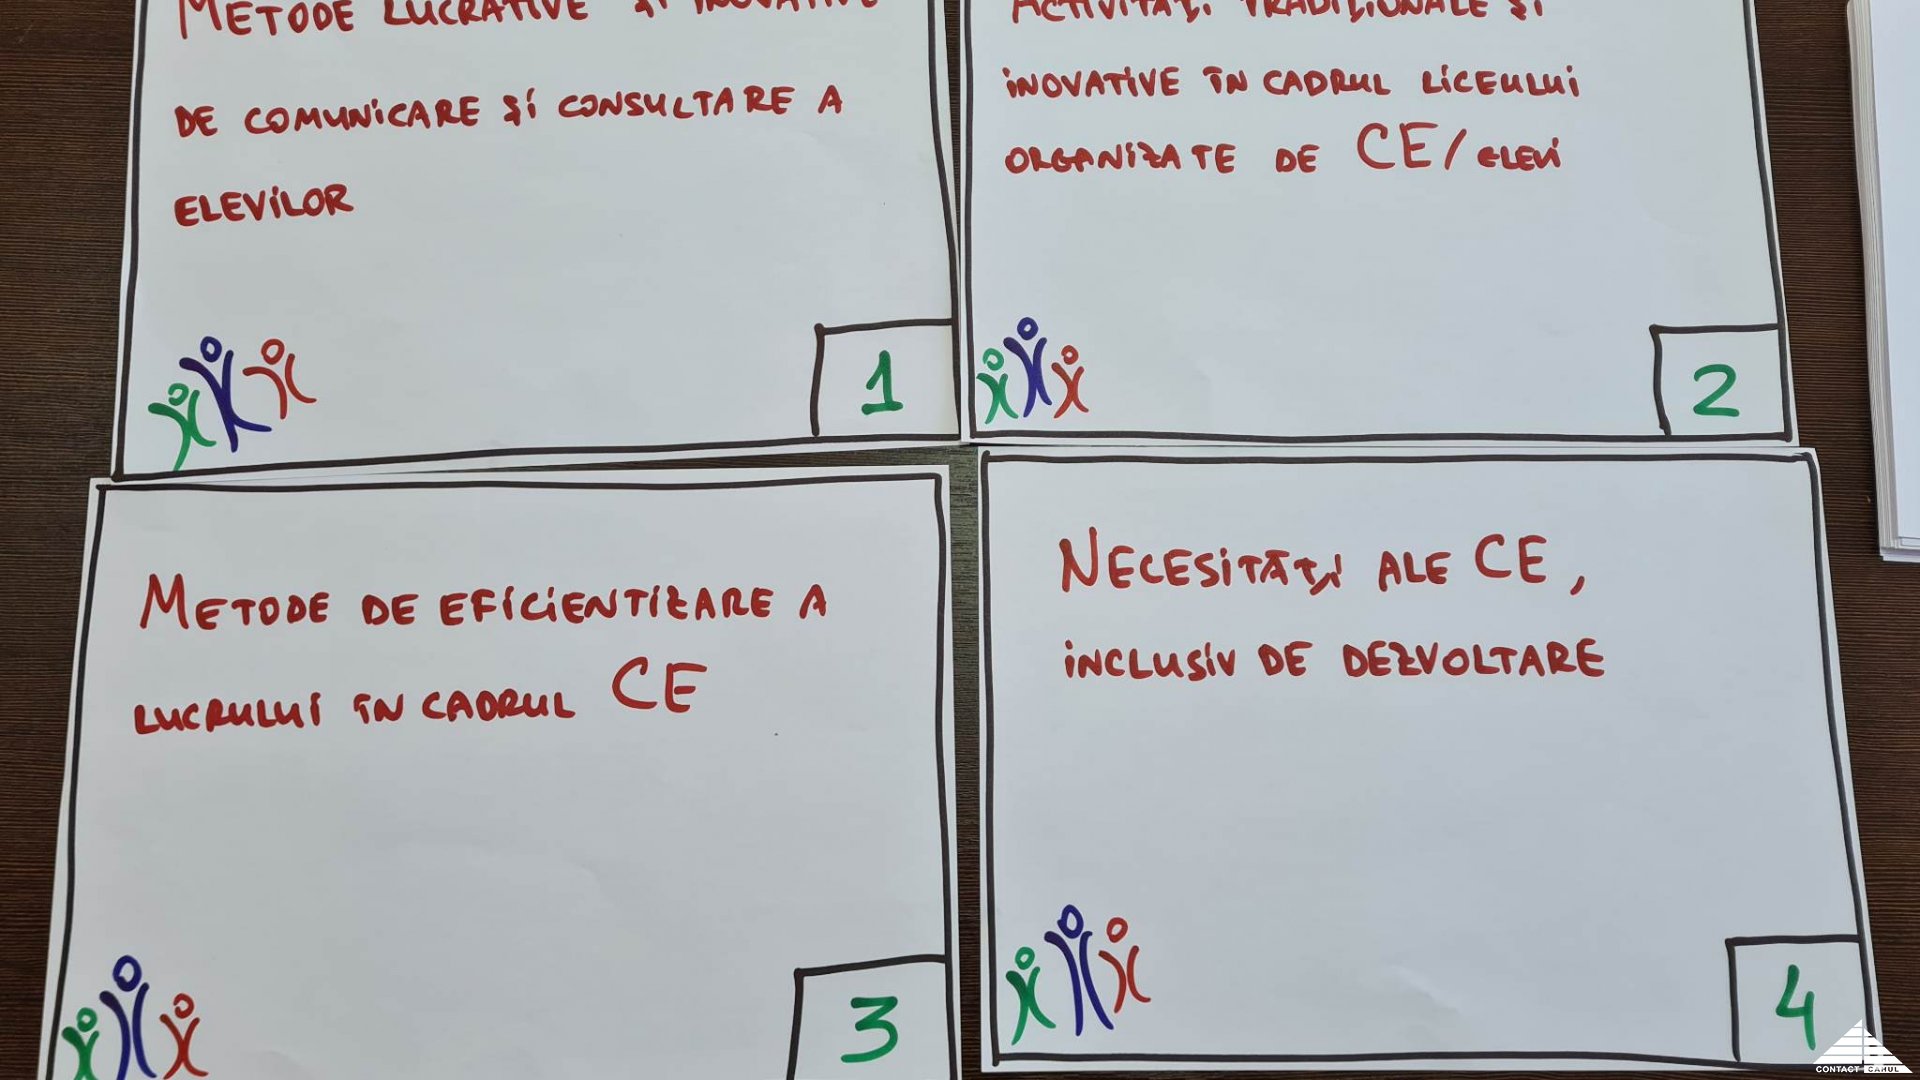 METODE LUCRATIVE ȘI INOVATIVE
DE COMUNICARE ȘI CONSULTARE A
ELEVILOR
1
ACTIVITĂȚI TRADIȚIONALE ȘI
INOVATIVE ÎN CADRUL LICEULUI
ORGANIZATE DE CE/ELEVI
2
METODE DE EFICIENTIZARE A
LUCRULUI ÎN CADRUL CE
3
NECESITĂȚI ALE CE,
INCLUSIV DE DEZVOLTARE
4
CONTACT CAHUL